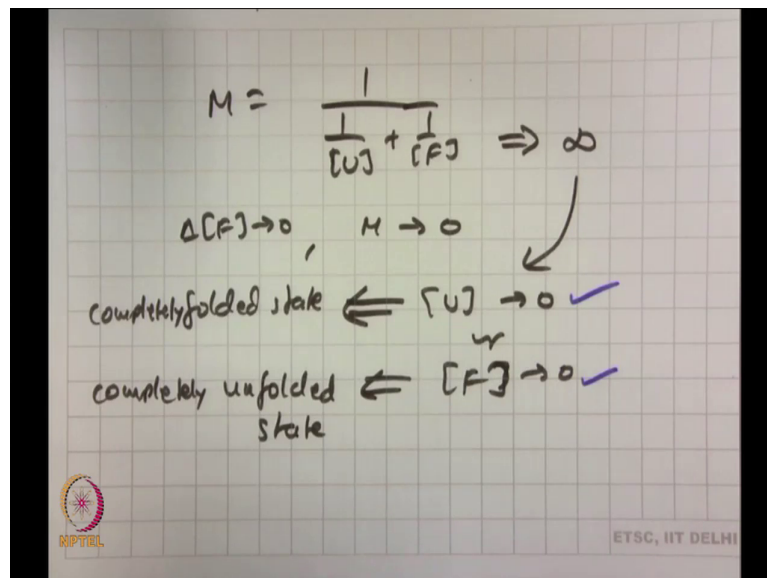 M = 1 / (1/[U] + 1/[F]) ⇒ ∞
Δ[F]→0 , M → 0
completely folded state ⇐ [U] → 0 ✓
or
completely unfolded state ⇐ [F] → 0 ✓
NPTEL
ETSC, IIT DELHI